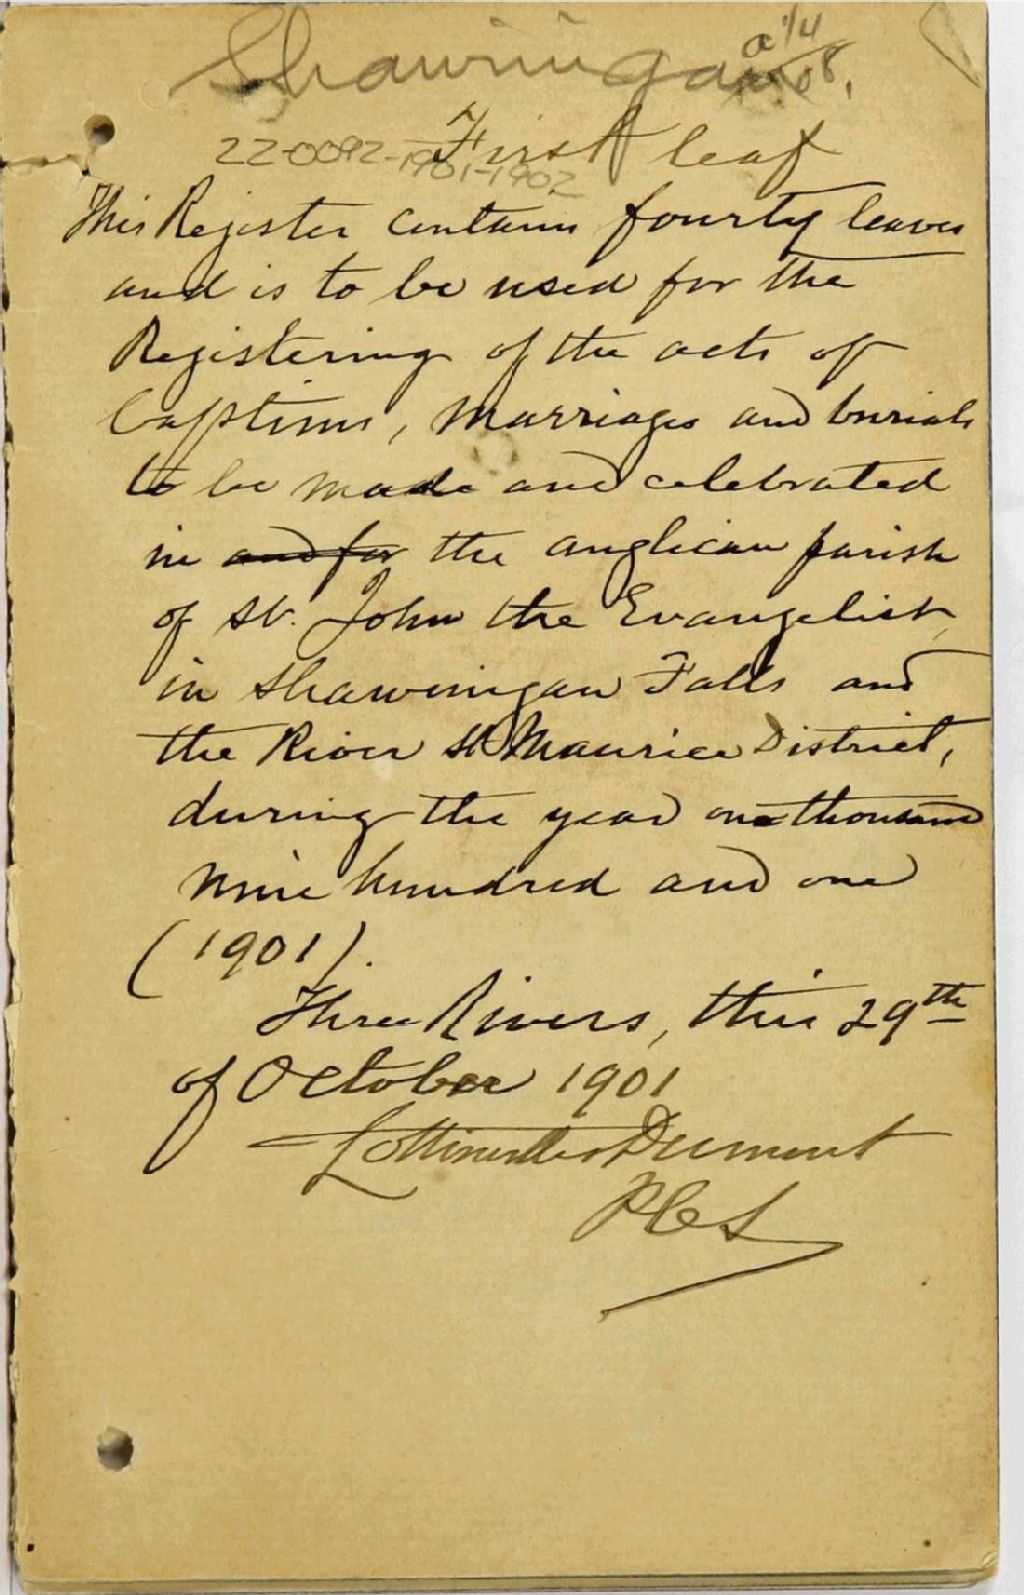 Shawinigan
First leaf
22-0092-1901-1902
This Register contains fourty leaves
and is to be used for the
Registering of the acts of
baptisms, marriages and burials
to be made and celebrated
in and for the anglican parish
of St. John the Evangelist,
in Shawinigan Falls and
the River St Maurice District,
during the year one thousand
nine hundred and one
(1901).
Three Rivers, this 29th
of October 1901
Dumont
PCS